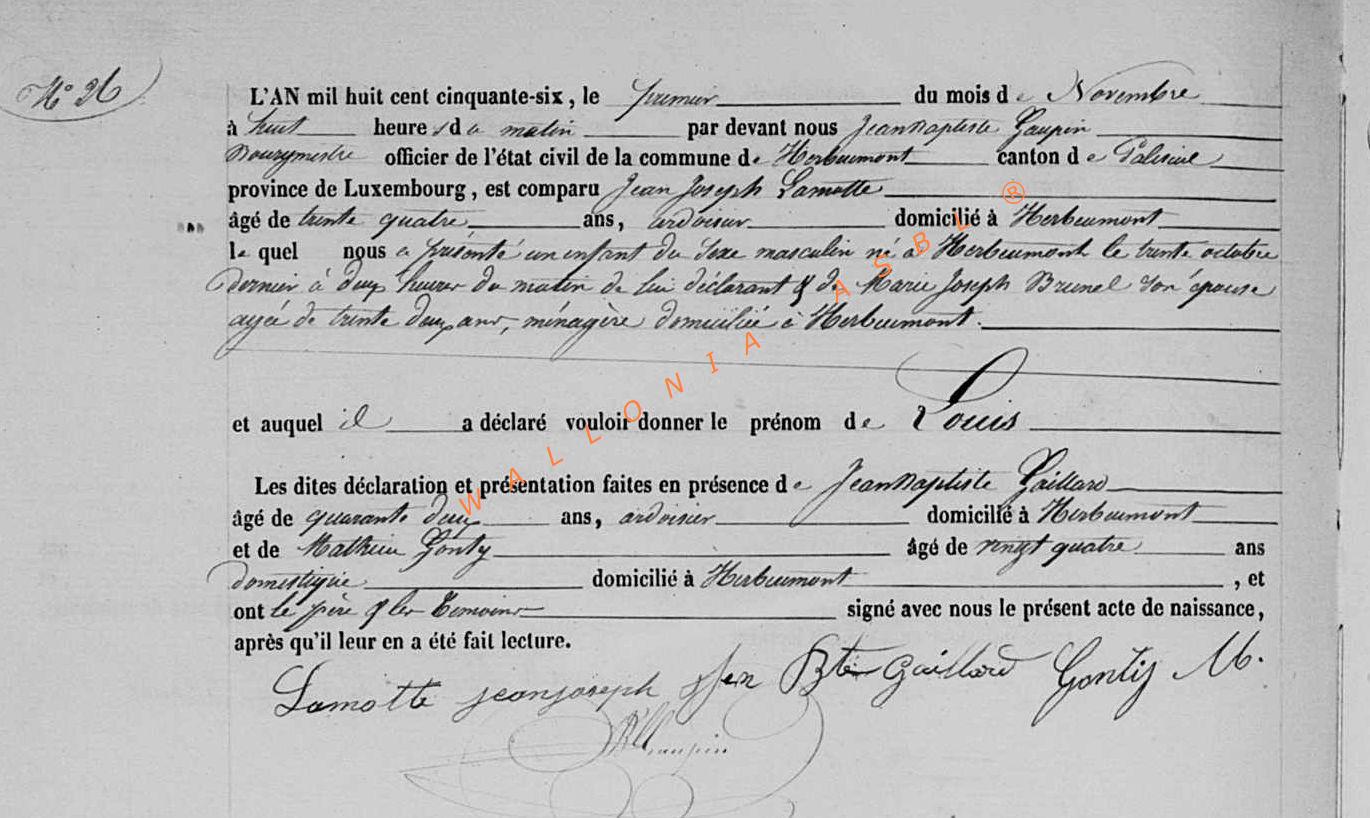 N° 26
L'AN mil huit cent cinquante-six, le premier du mois de Novembre
à huit heures du matin par devant nous Jean Baptiste Gaupin
Bourgmestre officier de l'état civil de la commune de Herbeumont canton de Paliseul
province de Luxembourg, est comparu Jean Joseph Lamotte
âgé de trente quatre ans, ardoisier domicilié à Herbeumont
le quel nous a présenté un enfant du sexe masculin né à Herbeumont le trente octobre
dernier à deux heures du matin de lui déclarant & de Marie Joseph Brunel son épouse
agée de trente deux ans, ménagère domiciliée à Herbeumont.
et auquel il a déclaré vouloir donner le prénom de Louis
Les dites déclaration et présentation faites en présence de Jean Baptiste Gaillard
âgé de quarante deux ans, ardoisier domicilié à Herbeumont
et de Mathieu Gonty âgé de vingt quatre ans
domestique domicilié à Herbeumont, et
ont le père & les témoins signé avec nous le présent acte de naissance,
après qu'il leur en a été fait lecture.
Lamotte jean joseph Jen Bte Gaillard Gontij M.
WALLONIA ASBL ®